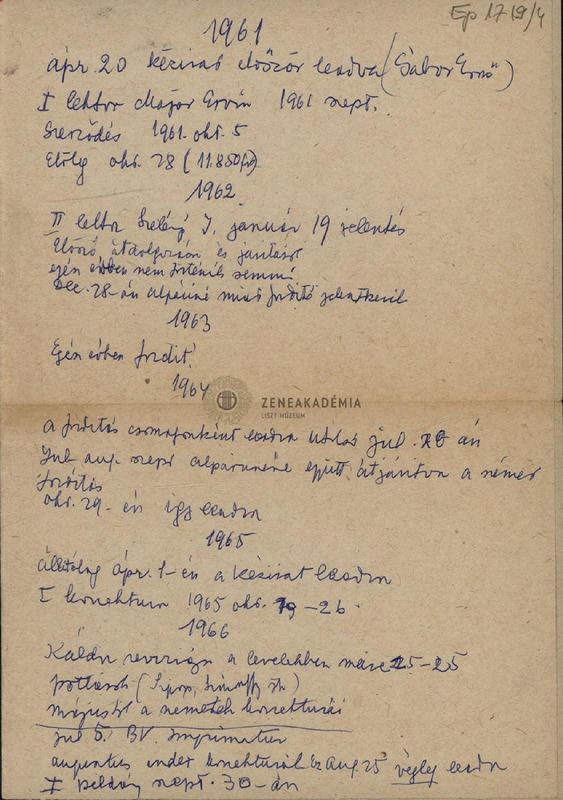 Ep 1719/4
1961
ápr. 20 kézirat először leadva (Gábor Ernő)
I lektor Major Ervin 1961 szept.
Szerződés 1961. okt. 5
Előleg okt. 28 (11.850 Ft)
1962
II lektor Szelényi I. január 19 jelentés
Előző átdolgozás és javítás
egész évben nem történik semmi
Dec. 28-án mint fordító jelentkezik
1963
Egész évben fordít!
1964
ZENEAKADÉMIA
LISZT MÚZEUM
A fordítás csomagonként leadva utolsó jul. án
Jul. aug. szept együtt átjavítva a német
fordítás
okt. 29-én így leadva
1965
állítólag ápr. 1-én a kézirat leadva
I korrektura 1965 okt. 19-26
1966
revizió a levelekben márc 25-25
pótlások
májustól a németek korrekturái
jul 5. BV. imprimatur
augusztus korrekturái Ez aug. 25 végleg leadva
I példány szept. 30-án